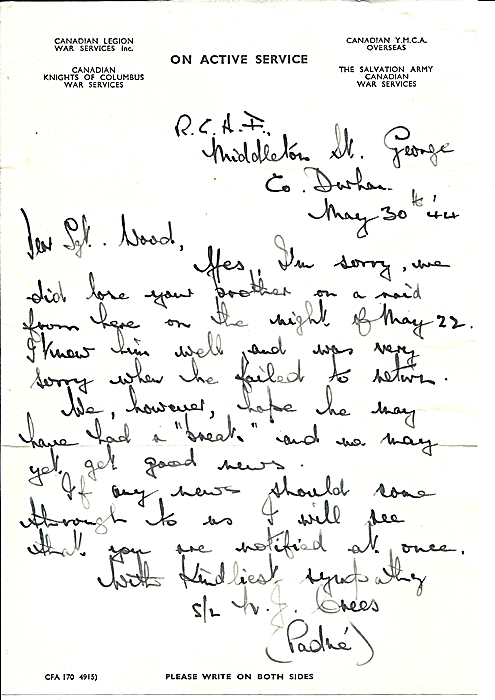 CANADIAN LEGION
WAR SERVICES Inc.
CANADIAN
KNIGHTS OF COLUMBUS
WAR SERVICES
ON ACTIVE SERVICE
CANADIAN Y.M.C.A.
OVERSEAS
THE SALVATION ARMY
CANADIAN
WAR SERVICES
R.C.A.F.,
Middleton St. George
Co. Durham.
May 30th '44
Dear Sgt. Wood,
Yes, I'm sorry, we
did lose your brother on a raid
from here on the night of May 22.
I knew him well and was very
sorry when he failed to return.
We, however, hope he may
have had a "break" and we may
yet get good news.
If any news should come
through to us I will see
that you are notified at once.
With kindliest sympathy
S/L J. Crees
(Padré)
CFA 170 4915)
PLEASE WRITE ON BOTH SIDES